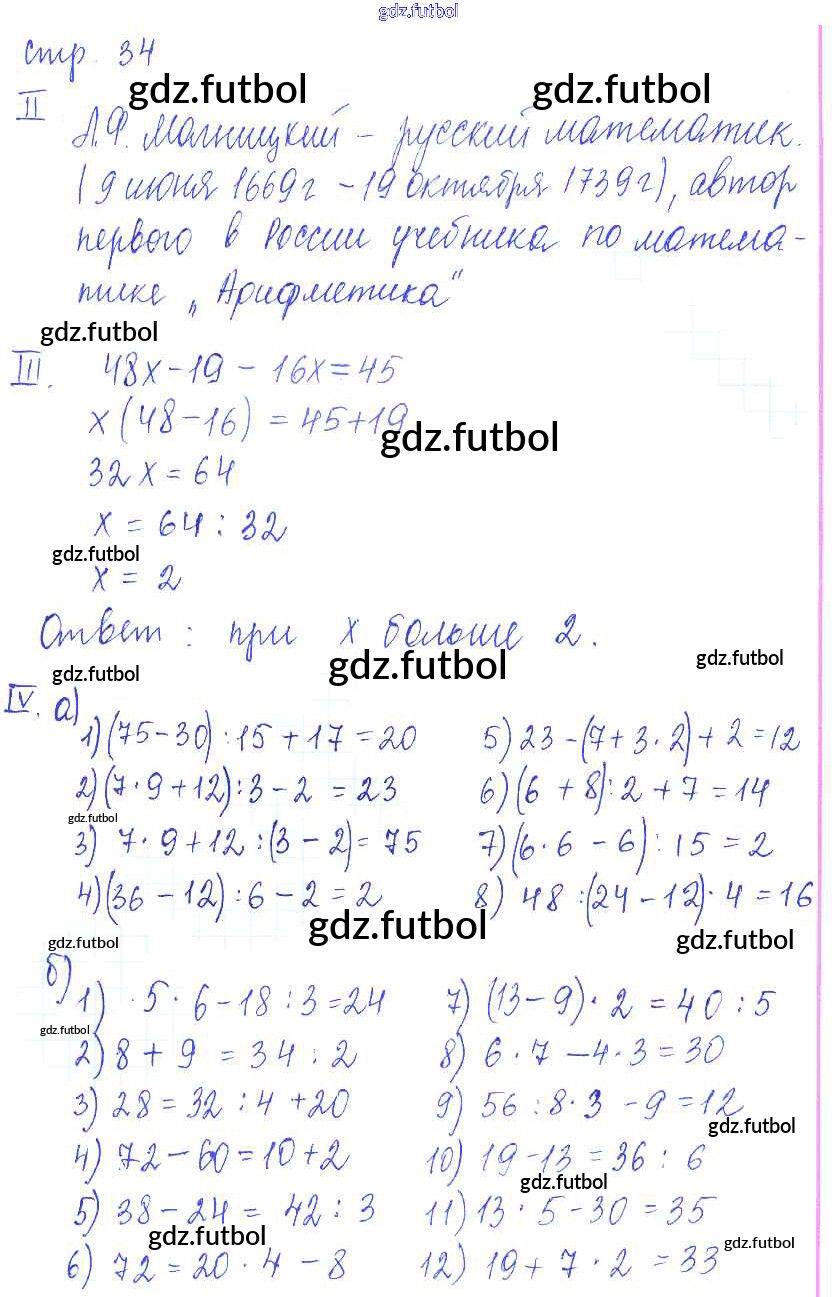 gdz.futbol
стр. 34
gdz.futbol gdz.futbol
II Л.Ф. Магницкий – русский математик.
(9 июня 1669г – 19 октября 1739г), автор
первого в России учебника по матема-
тике „Арифметика“
gdz.futbol
III. 48x – 19 – 16x = 45
x(48 – 16) = 45 + 19
gdz.futbol
32x = 64
x = 64 : 32
gdz.futbol
x = 2
Ответ: при x больше 2.
gdz.futbol gdz.futbol gdz.futbol
IV. а)
1) (75 – 30) : 15 + 17 = 20
2) (7 · 9 + 12) : 3 – 2 = 23
gdz.futbol
3) 7 · 9 + 12 : (3 – 2) = 75
4) (36 – 12) : 6 – 2 = 2
5) 23 – (7 + 3 · 2) + 2 = 12
6) (6 + 8) : 2 + 7 = 14
7) (6 · 6 – 6) : 15 = 2
8) 48 : (24 – 12) · 4 = 16
gdz.futbol gdz.futbol gdz.futbol
б)
1) 5 · 6 – 18 : 3 = 24
gdz.futbol
2) 8 + 9 = 34 : 2
3) 28 = 32 : 4 + 20
4) 72 – 60 = 10 + 2
5) 38 – 24 = 42 : 3
gdz.futbol
6) 72 = 20 · 4 – 8
7) (13 – 9) · 2 = 40 : 5
8) 6 · 7 – 4 · 3 = 30
9) 56 : 8 · 3 – 9 = 12
gdz.futbol
10) 19 – 13 = 36 : 6
gdz.futbol
11) 13 · 5 – 30 = 35
gdz.futbol
12) 19 + 7 · 2 = 33